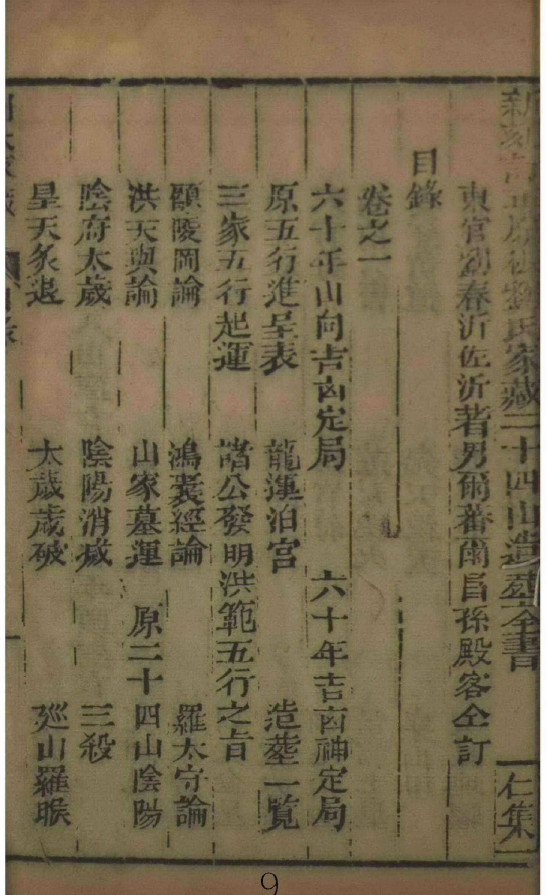 新刻 氏家藏二十四山造葬全書 仁集
東官劉春沂佐沂著男爾蕃爾昌孫殿客仝訂
目錄
卷之一
六十年山向吉凶定局 六十年吉凶神定局
原五行進呈表 龍運泊宮 造葬一覽
三家五行起運 諸公發明洪範五行之旨
顧陵岡論 鴻囊經論 羅太守論
洪天與論 山家墓運 原二十四山陰陽
陰府太歲 陰陽消滅 三殺
星天象退 大歲歲破 廵山羅睺
9